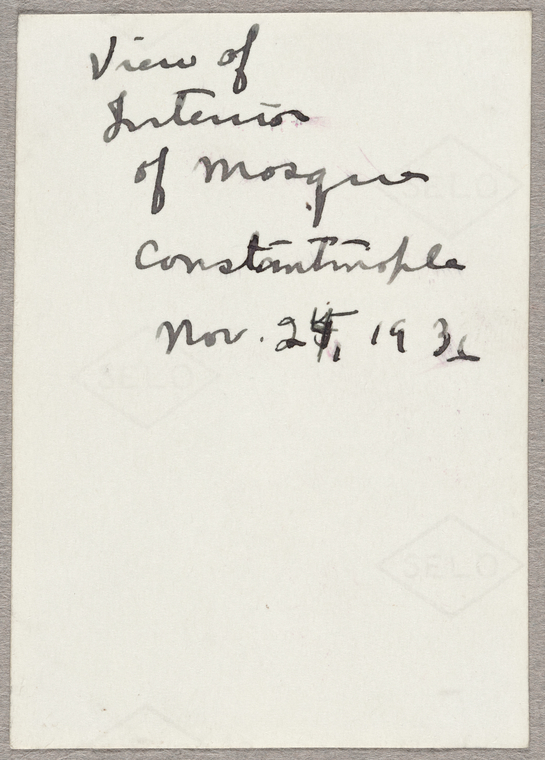 View of
Interior
of Mosque
Constantinople
Nov. 19
SELO
SELO
SELO